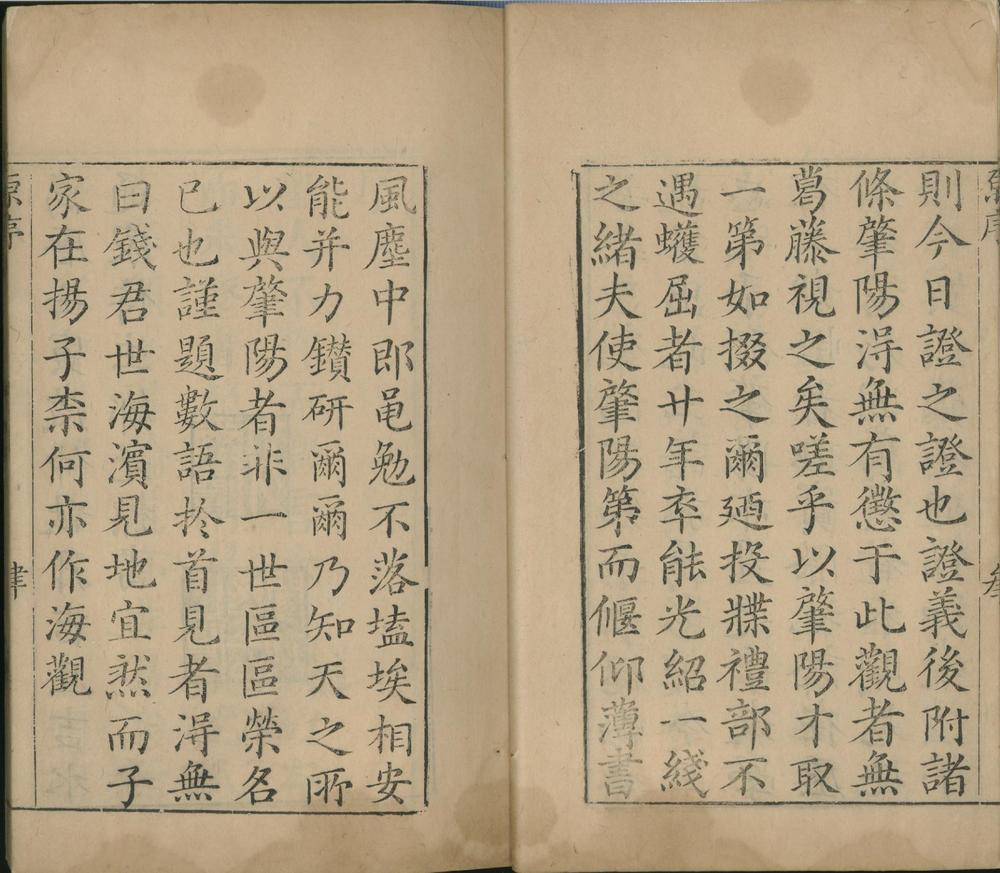 則今日證之證也證義後附諸
條肇陽淂無有懲于此觀者無
葛藤視之矣嗟乎以肇陽才取
一第如掇之爾廼投牒禮部不
遇蠖屈者廿年卒能光紹一綫
之緒夫使肇陽第而偃仰薄書
風塵中郎黽勉不落壒埃相安
能并力鑽研爾爾乃知天之所
以與肇陽者非一世區區榮名
已也謹題數語於首見者淂無
曰錢君世海濱見地宜然而子
家在揚子柰何亦作海觀